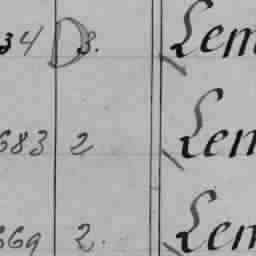 34 D3. Lem
683 2 Lem
669 2. Lem